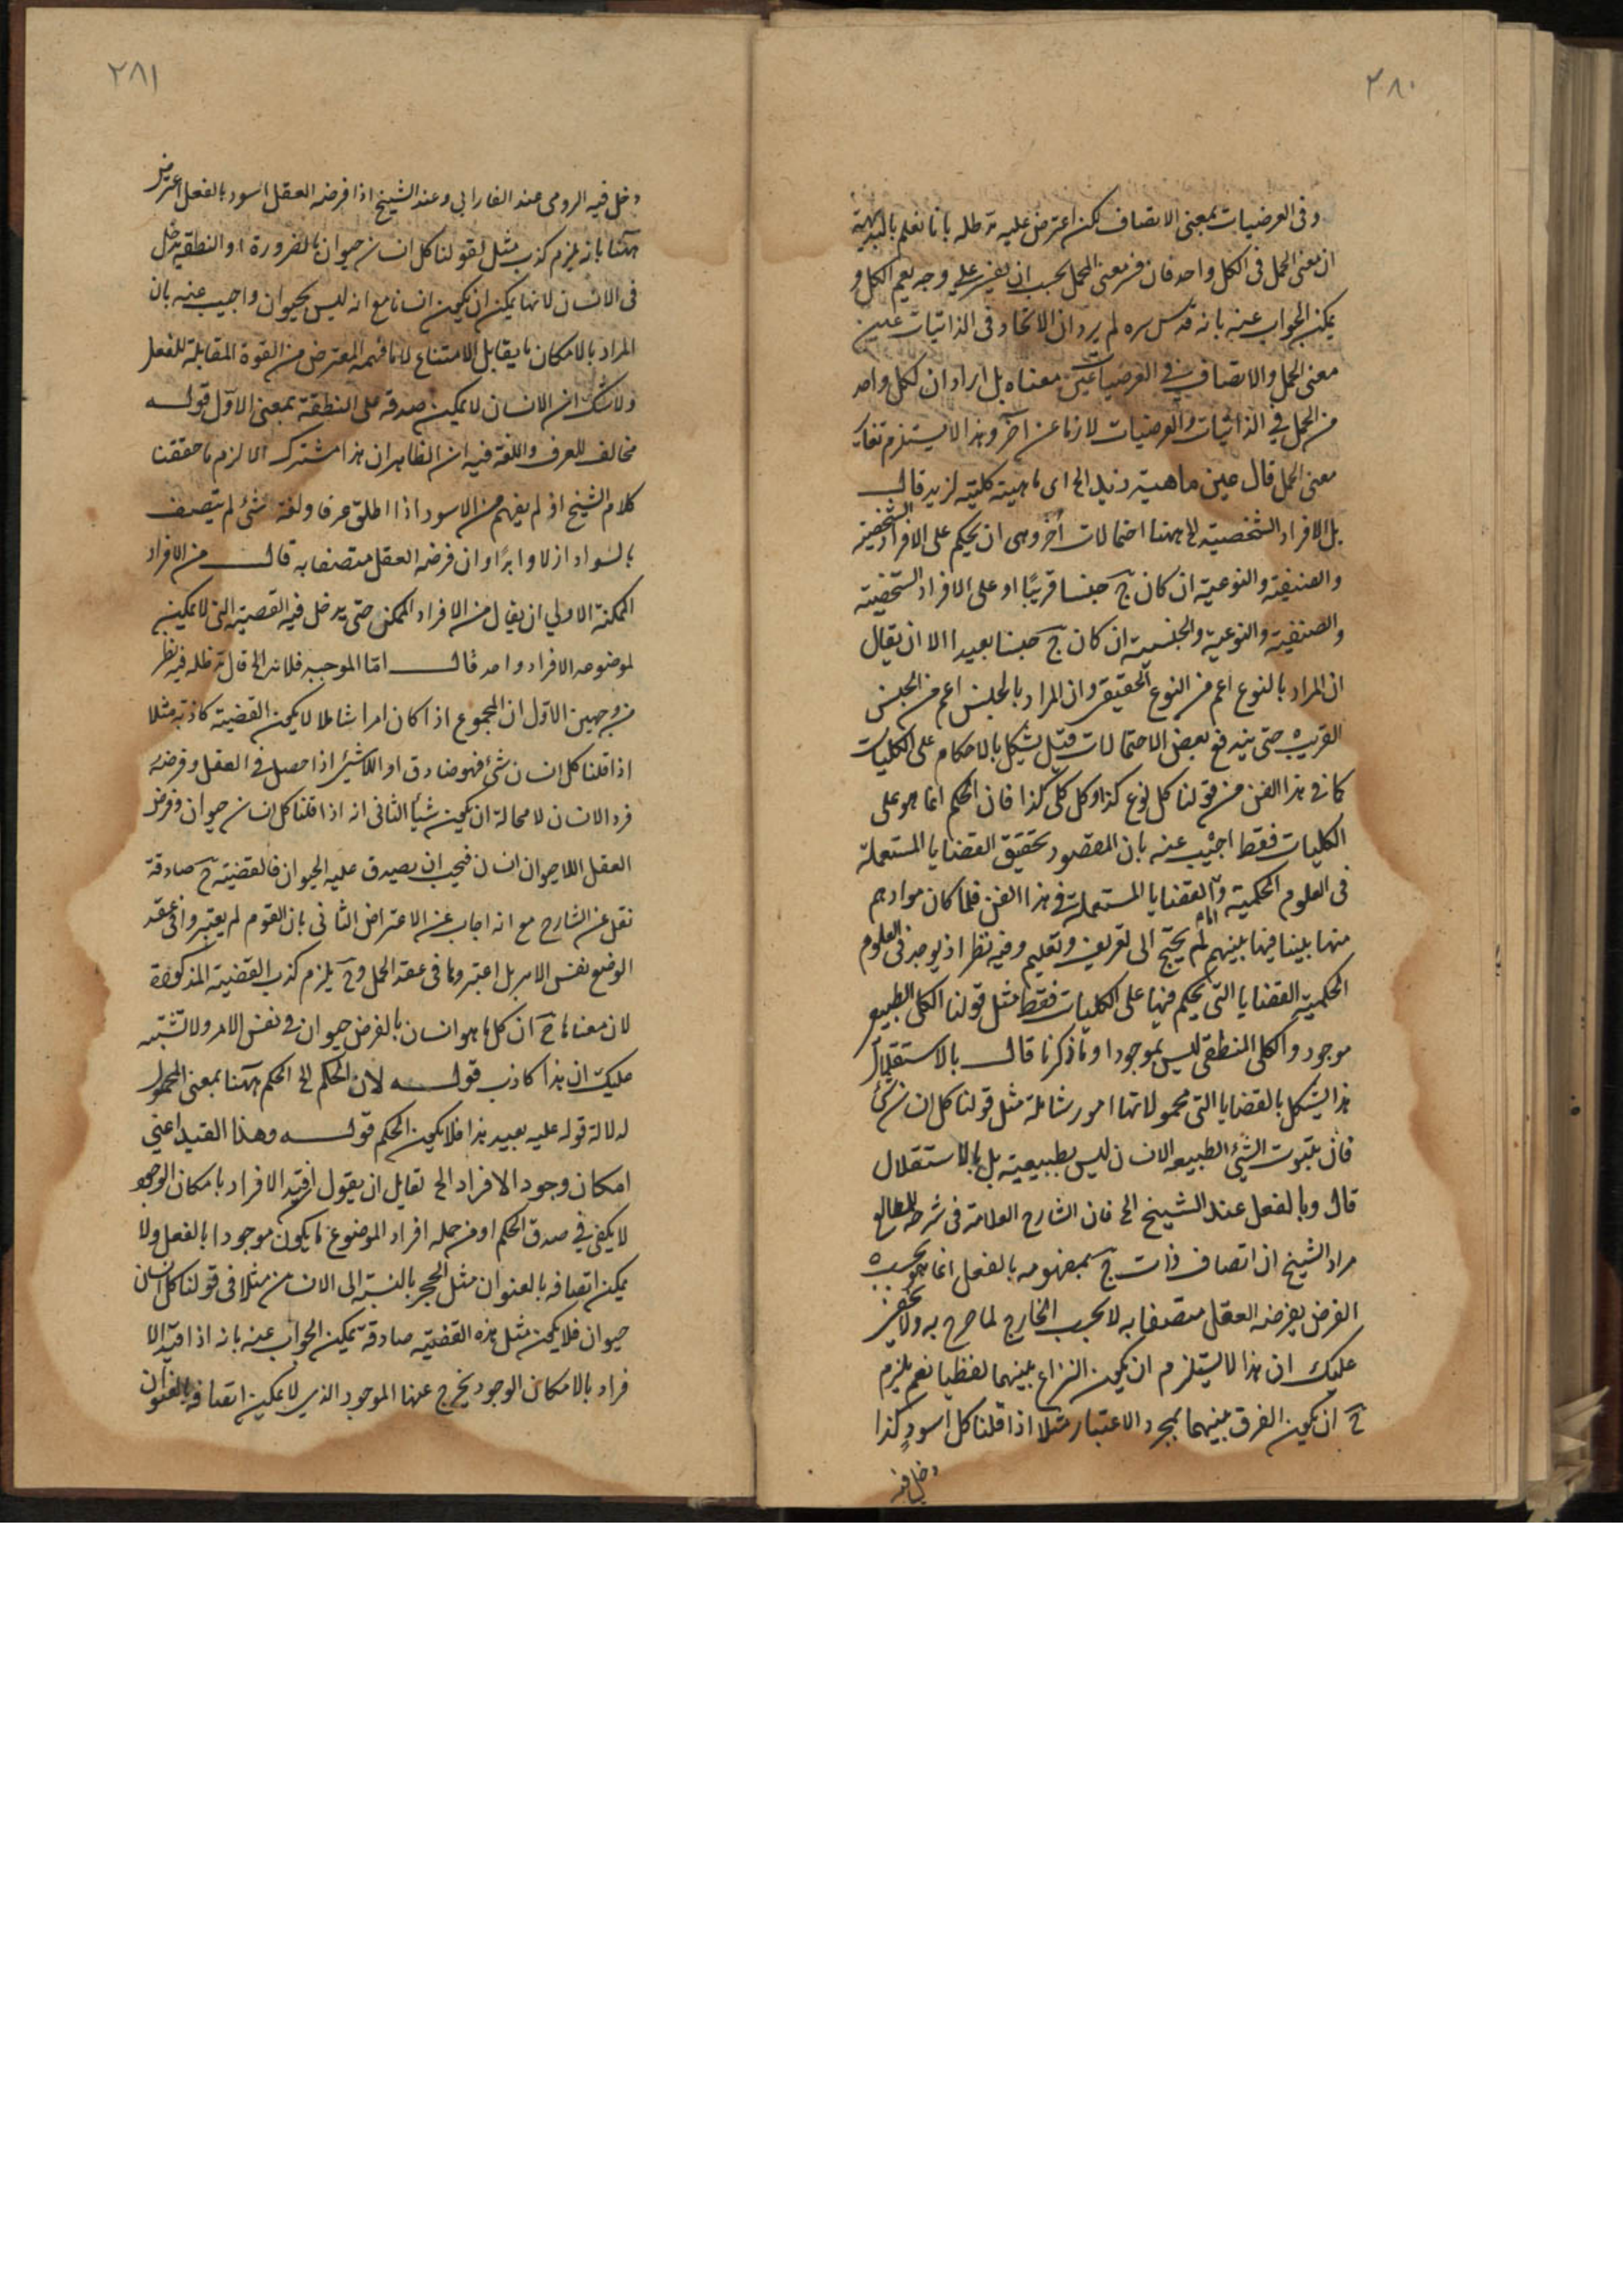 ٢٨٠
وفى العرضيات بمعنى الاتصاف لكن اعترض عليه مد ظله بانا نعلم بالبديهة
ان معنى الحمل فى الكل واحد فان فسر معنى الحمل يجب ان يفسر على وجه يعم الكل و
يمكن الجواب عنه بانه قدس سره لم يرد ان الاتحاد فى الذاتيات عين
معنى الحمل والاتصاف فى العرضيات عين معناه بل اراد ان لكل واحد
من الحمل فى الذاتيات والعرضيات لازما عن آخر وهذا لا يستلزم تغاير
معنى الحمل قال عين ماهية زيد الخ اى ماهيته كلية لزيد قال
بل الافراد الشخصية الخ ههنا احتمالات أخر وهى ان يحكم على الافراد الشخصية
والصنفية والنوعية ان كان ج جنسا قريبًا او على الافراد الشخصية
والصنفية والنوعية والجنسية ان كان ج جنسا بعيدا الا ان يقال
ان المراد بالنوع اعم من النوع الحقيقى وان المراد بالجنس اعم من الجنس
القريب حتى يندفع بعض الاحتمالات قيل يشكل بالاحكام على الكليات
كما فى هذا الفن من قولنا كل نوع كذا وكل كلى كذا فان الحكم انما هو على
الكليات فقط اجيب عنه بان المقصود تحقيق القضايا المستعملة
فى العلوم الحكمية واما القضايا المستعملة فى هذا الفن فلما كان مرادهم
منها بينا فيما بينهم لم يحتج الى تعريف وتعليم وفيه نظر اذ يوجد فى العلوم
الحكمية القضايا التى يحكم فيها على الكليات فقط مثل قولنا الكلى الطبيعى
موجود والكلى المنطقى ليس بموجود او ما ذكرنا قال بالاستقلال
هذا يشكل بالقضايا التى محمولاتها امور شاملة مثل قولنا كل انسان شئ
فان ثبوت الشئ لطبيعة الانسان ليس بطبيعية بل بالاستقلال
قال وبالفعل عند الشيخ الخ فان الشارح العلامة فى شرحه للمطالع
مراد الشيخ ان اتصاف ذات ج بمفهومه بالفعل انما هو بحسب
الفرض يفرضه العقل متصفا به لا بحسب الخارج لما صرح به ولا يخفى
عليك ان هذا لا يستلزم ان يكون النزاع بينهما لفظيا نعم يلزم
ح ان يكون الفرق بينهما بمجرد الاعتبار مثلا اذا قلنا كل اسود كذا
دخل فيه
٢٨١
دخل فيه الرومى عند الفارابى وعند الشيخ اذا فرضه العقل اسود بالفعل اعترض
ههنا بانه يلزم كذب مثل لقولنا كل انسان حيوان بالضرورة اذ النطفة يدخل
فى الانسان لانها يمكن ان يكون انسانا مع انه ليس بحيوان واجيب عنه بان
المراد بالامكان ما يقابل الامتناع لا ما فهمه المعترض من القوة المقابلة للفعل
ولا شك ان الانسان لا يمكن صدقه على النطفة بمعنى الاول قوله
مخالف للعرف واللغة فيه ان الظاهر ان هذا مشترك الالزم ما حققنا
كلام الشيخ اذ لم يفهم من الاسود اذا اطلق عرفا ولغة شئ لم يتصف
بالسواد ازلا وابدًا وان فرضه العقل متصفا به قال من الافراد
الممكنة الاولى ان يقال من الافراد الممكن حتى يدخل فيه القضية التى لا يمكن
لموضوعه الافراد واحد قال امّا الموجبه فلانه الخ قال مد ظله فيه نظر
من وجهين الاوّل ان المجموع اذا كان امرا شاملا لا يكون القضية كاذبة مثلا
اذا قلنا كل انسان شئ فهو صادق او اللاشئ اذا حصل فى العقل وفرضه
فرد الانسان لا محالة ان يكون شيئا الثانى انه اذا قلنا كل انسان حيوان وفرض
العقل اللاحيوان انسان فيجب ان يصدق عليه الحيوان فالقضية ح صادقة
نقل عن الشارح مع انه اجاب عن الاعتراض الثانى بان القوم لم يعتبروا فى عقد
الوضع نفس الامر بل اعتبروها فى عقد الحمل وح يلزم كذب القضية المذكورة
لان معناها ح ان كل ما هو انسان بالفرض حيوان فى نفس الامر ولا تشتبه
عليك ان هذا كاذب قوله لان الحكم الخ الحكم ههنا بمعنى المحمول
لدلالة قوله عليه بعيد هذا فلا يكون الحكم قوله وهذا القيد اعنى
امكان وجود الافراد الخ لقايل ان يقول ان قيد الافراد بامكان الوجود
لا يكفى فى صدق الحكم او من جملة افراد الموضوع ما يكون موجودا بالفعل ولا
يمكن اتصافه بالعنوان مثل الحجر بالنسبة الى الانسان مثلا فى قولنا كل انسان
حيوان فلا يكون مثل هذه القضية صادقة يمكن الجواب عنه بانه اذا قيد الا
فراد بالامكان الوجود يخرج عنها الموجود الذى لا يمكن اتصافه بالعنوان